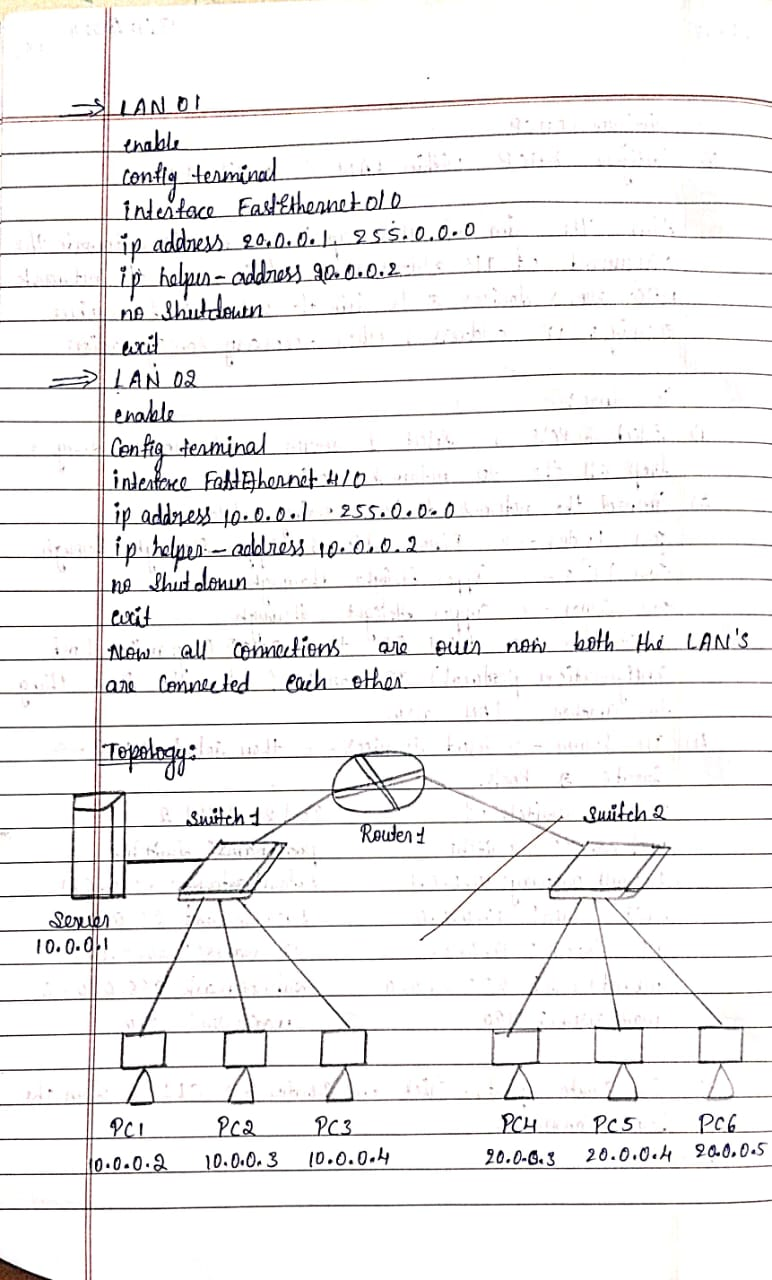 ⇒ LAN 01
enable
config terminal
interface FastEthernet 0/0
ip address 20.0.0.1 255.0.0.0
ip helper-address 20.0.0.2
no shutdown
exit
⇒ LAN 02
enable
Config terminal
interface FastEthernet 4/0
ip address 10.0.0.1 255.0.0.0
ip helper-address 10.0.0.2
no shutdown
exit
Now all connections are over now both the LAN's
are connected each other
Topology:
Switch 1
Switch 2
Router 1
Server
10.0.0.1
PC1 PC2 PC3 PC4 PC5 PC6
10.0.0.2 10.0.0.3 10.0.0.4 20.0.0.3 20.0.0.4 20.0.0.5